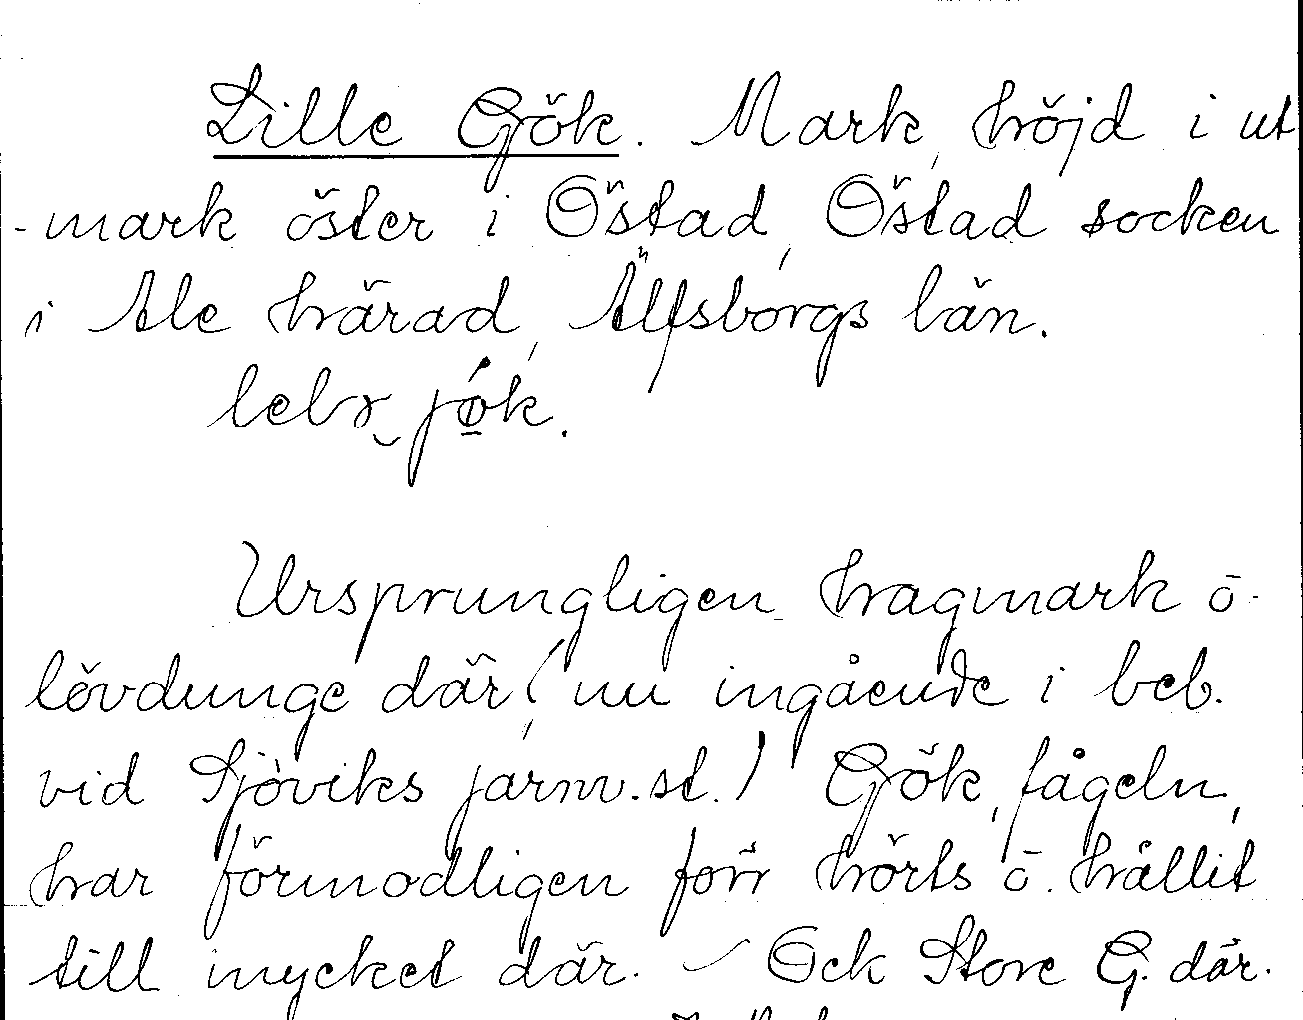 Lille Gök. Mark, höjd i ut
-mark öster i Östad, Östad socken
i Ale härad, Älfsborgs län.
jøk.
Ursprungligen hagmark o
lövdunge där, (nu ingående i beb.
vid Sjöviks järnv.st.) Gök, fågeln,
har förmodligen förr hörts o. hållit
till mycket där. – Ock Store G. där.